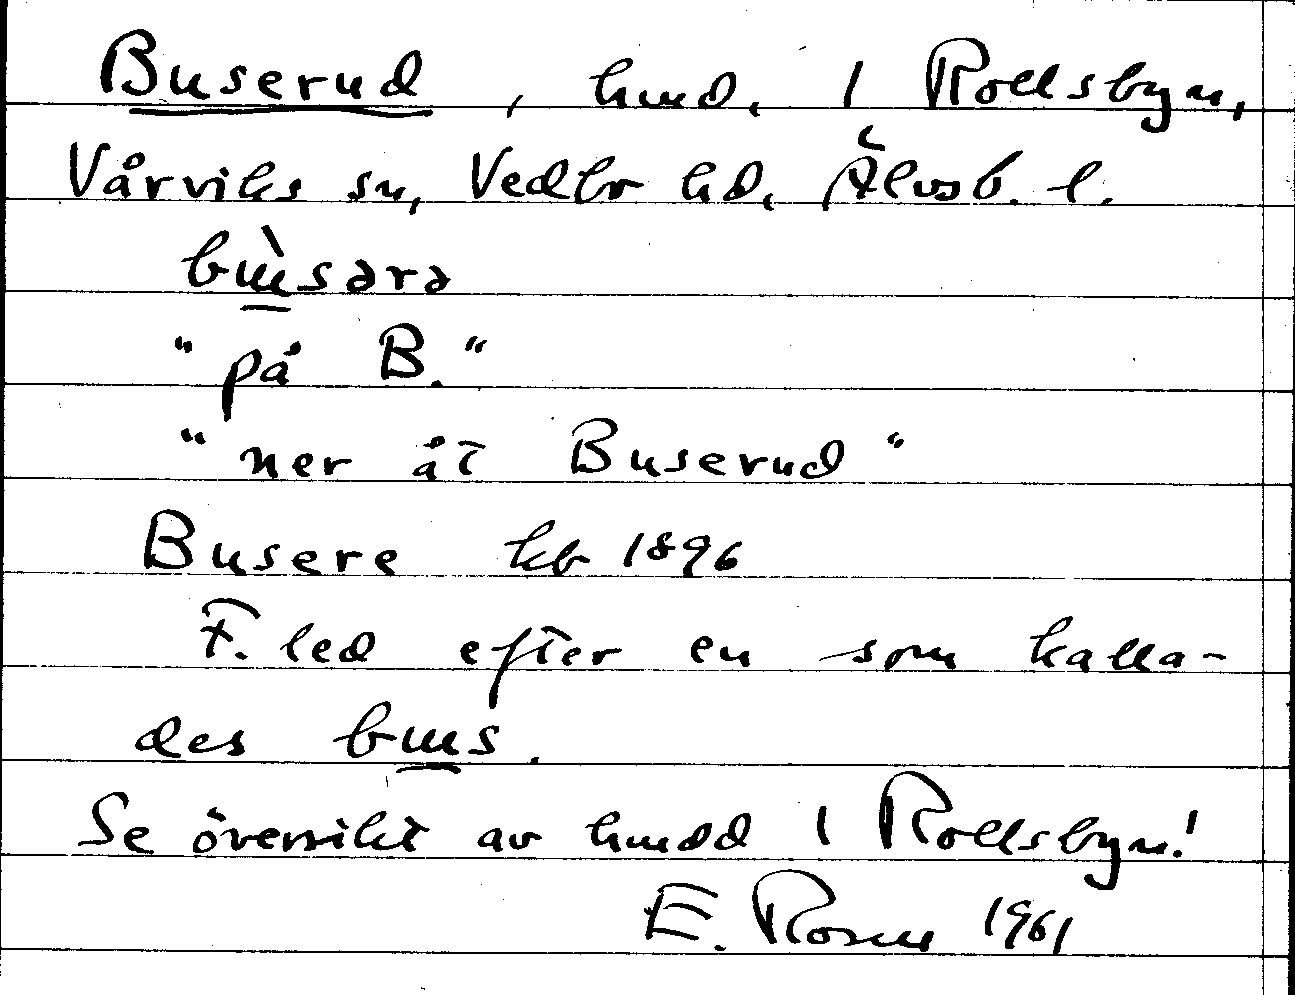 Buserud, hmd, i Rollsbyn,
Vårviks sn, Vedbo hd, Älvsb. l.
bɯ̀sərə
"på B."
"ner åt Buserud"
Busere kb 1896
F. led efter en som kalla-
des bɯs.
Se översikt av hmdd i Rollsbyn!
E. Rosell 1961